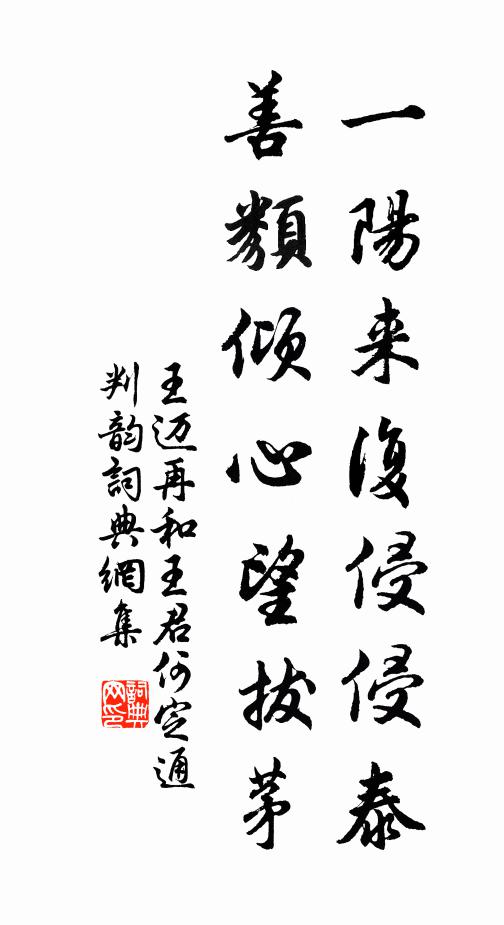 一陽来復侵侵泰
善類傾心望拔茅
王迈再和王君何定通
判韵詞典網集
詞典
网印